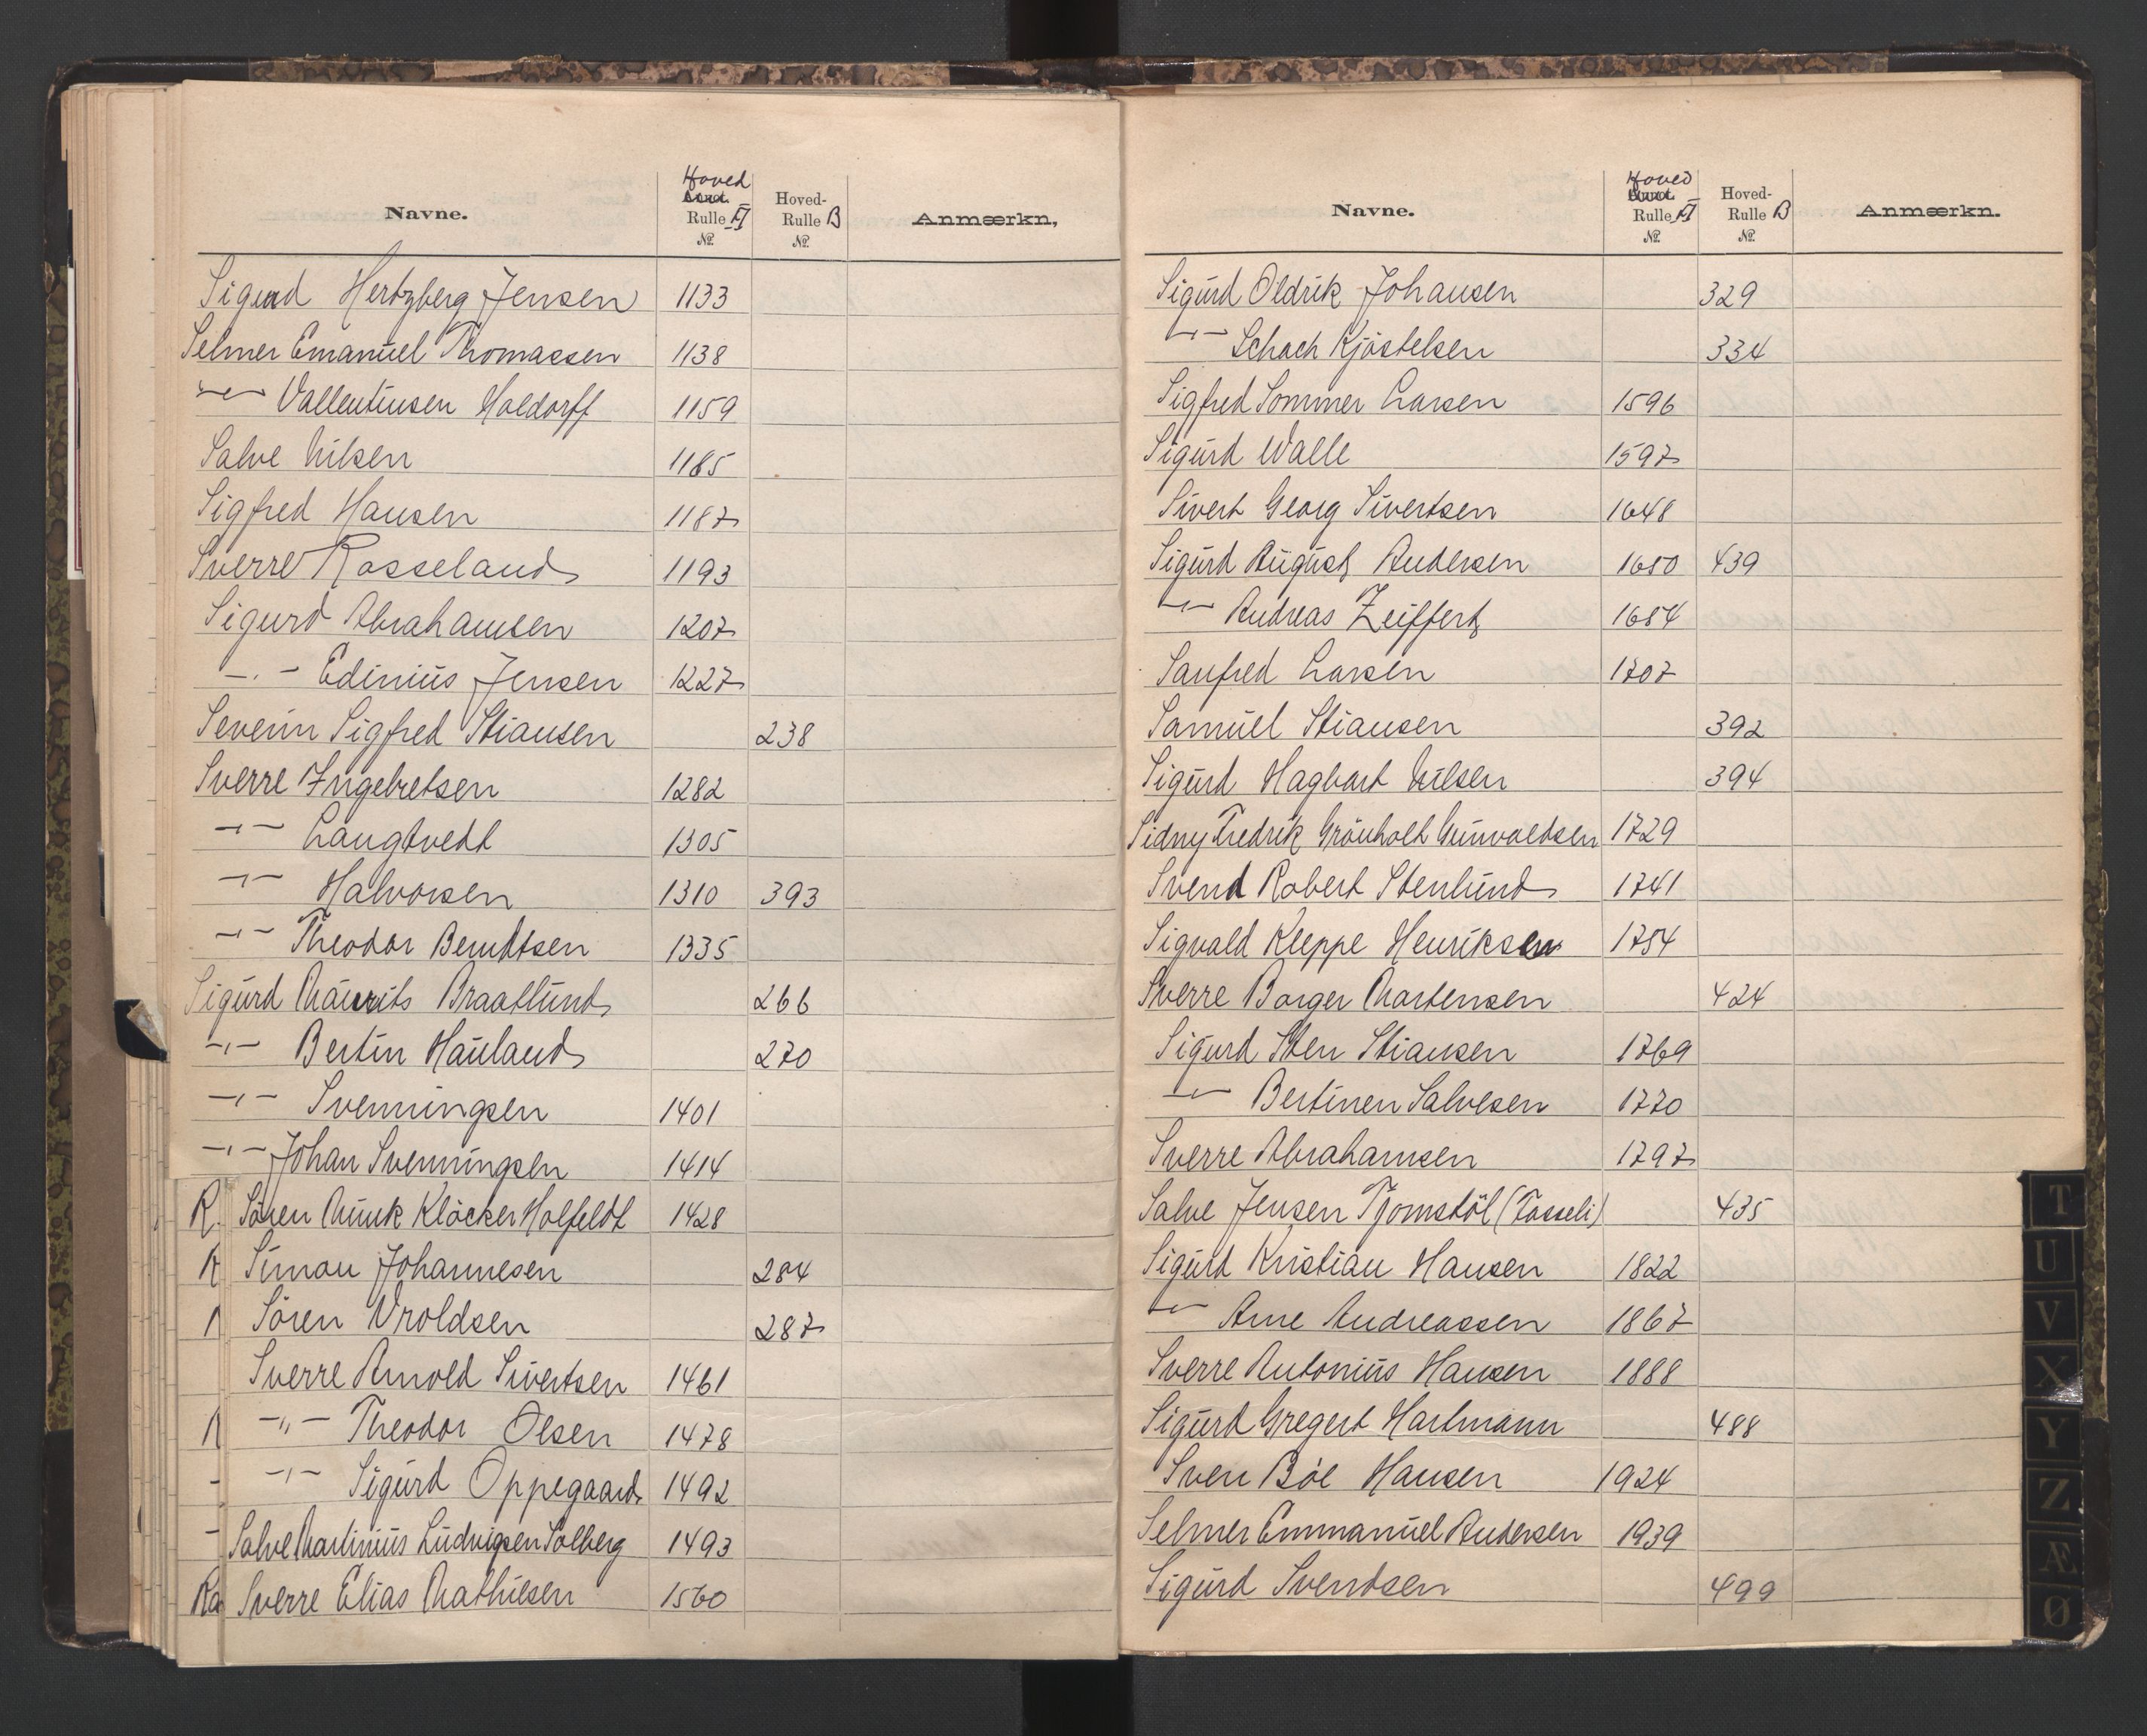 Navne. Hoved Rulle A № Hoved-Rulle B № Anmærkn.
Sigurd Hertzberg Jensen 1133
Selmer Emanuel Thomassen 1138
—"— Vallentinsen Holdorff 1159
Salve Nilsen 1165
Sigfred Hansen 1187
Sverre Rosseland 1193
Sigurd Abrahamsen 1207
—"— Edinius Jensen 1227
Severin Sigfred Stiansen 238
Sverre Ingebretsen 1282
—"— Langtvedt 1305
—"— Halvorsen 1310 393
—"— Theodor Berndtsen 1335
Sigurd Mauritz Braatlund 266
—"— Bertin Hauland 270
—"— Svenningsen 1401
—"— Johan Svenningsen 1414
R Sören Munk Klöcker Holfeldt 1428
Simon Johannesen 284
Sören Vroldsen 287
Sverre Arnold Sivertsen 1461
—"— Theodor Olsen 1478
—"— Sigurd Oppegaard 1492
Salve Martinius Ludvigsen Solberg 1493
Ra Sverre Elias Mathiesen 1560
Navne. Hoved Rulle A № Hoved-Rulle B № Anmærkn.
Sigurd Oldrik Johansen 329
—"— Schach Kjöstelsen 334
Sigfred Sommer Larsen 1596
Sigurd Walle 1597
Sivert Georg Sivertsen 1648
Sigurd August Andersen 1650 439
—"— Andreas Zeiffert 1654
Sanfred Larsen 1707
Samuel Stiansen 392
Sigurd Hagbart Nilsen 394
Sidny Fredrik Grönholt Gunvaldsen 1729
Svend Robert Stenlund 1741
Sigvald Kleppe Henriksen 1754
Sverre Borger Mortensen 424
Sigurd Sten Stiansen 1769
—"— Bertinen Salvesen 1770
Sverre Abrahamsen 1797
Salve Jensen Tjomstöl (Tosseli) 435
Sigurd Kristian Hansen 1822
—"— Arne Andreassen 1867
Sverre Antonius Hansen 1888
Sigurd Gregert Hartmann 488
Sven Böe Hansen 1924
Selmer Emmanuel Andersen 1939
Sigurd Svendsen 499
T
U
V
X
Y
Z
Æ
Ø